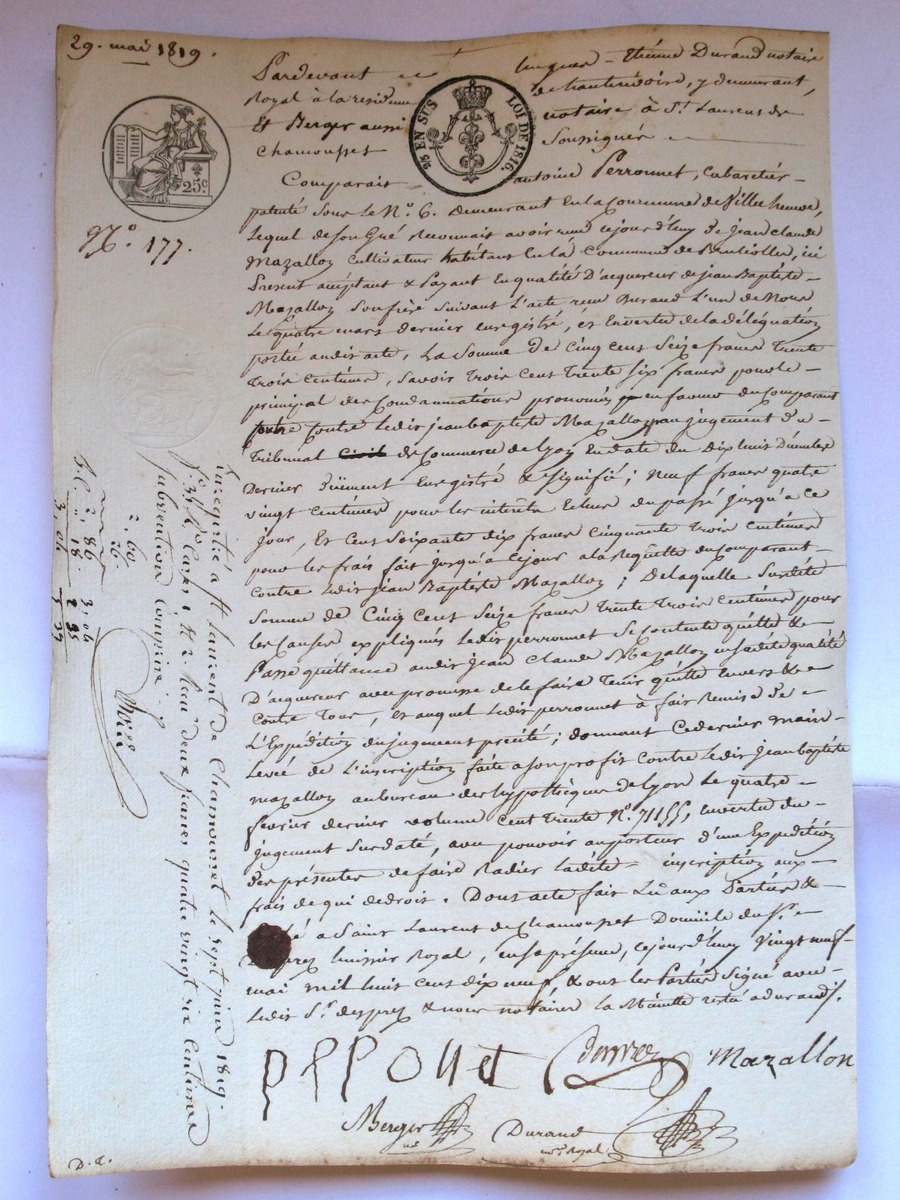 29. mai 1819.
Pardevant Jacques-Etienne Durand notaire
Royal à la residence de Chantemoire, y demeurant,
et Berger aussi notaire à St. Laurent de
Chamousset Soussignés
25 EN SUS LOI DE 1816.
25c.
No. 177.
Comparait antoine Perronnet, Cabaretier
patenté sous le No. 6. Demeurant en la Commune de Villecheneve,
lequel de son Gré Reconnait avoir reçu cejourd'huy de Jean Claude
Mazallon Cultivateur habitant en la Commune de Brullioles, ici
Present acceptant & Payant En qualité D'acquereur de jean Baptiste
Mazallon son frère Suivant L'acte reçu Durand L'un de Nous
Le quatre mars dernier Enregistré, et En vertu de la délégation
portée audit acte, La Somme De Cinq cent Seize francs Trente
Trois Centimes, savoir Trois Cent Trente Six francs pour le
principal des Condamnations prononcées en faveur du Comparant
contre Ledit jean baptiste Mazallon par jugement du
Tribunal Civil de Commerce de Lyon En date du dix huit Décembre
Dernier Düement Enregistré & Signifié; Neuf francs quatre
vingt Centimes pour les interets Echus du passé jusqu'à ce
jour, Et Cent Soixante dix francs Cinquante Trois Centimes
pour les frais fait jusqu'à cejour a la Requette du Comparant
contre Ledit jean Baptiste Mazallon; De laquelle Susdite
Somme de Cinq Cent Seize francs Trente Trois Centimes pour
les Causes expliquées Ledit perronnet Se Contente quitte &
Passe quittance audit Jean Claude Mazallon en sa dite qualité
D'acquereur avec promesse de le faire Tenir quitte Envers &
Contre Tous, et auquel Ledit perronnet à fait Remise de
L'Expédition du jugement précité; donnant Ce dernier main
Levée de L'inscription faite a son profit Contre Ledit Jean baptiste
mazallon au bureau des hypothèques de Lyon Le quatre
fevrier dernier volume Cent Trente No. 71155, En vertu du
jugement Susdaté, avec pouvoir au porteur d'une Expédition
Des présentes de faire Radier Ladite inscription aux
frais de qui de droit. Dont acte fait Lu aux Parties &
a Saint Laurent de Chamousset Domicile du Sr.
huissier Royal, en sa présence, cejourd'huy vingt neuf
mai mil huit cent dix neuf, & ont les Parties Signé avec
Ledit Sr. desprez & nous notaires la Minutte restée a Durand.
perronet Desprez Mazallon
Berger Durand
nre Royal
Enregistré a St Laurent de Chamousset le Sept juin 1819.
Reçu deux francs quatre vingt six centimes
Subvention Comprise
2. 60
26.
2. 86 3, 04
18. 2 35
3, 04 5 39
D. C.